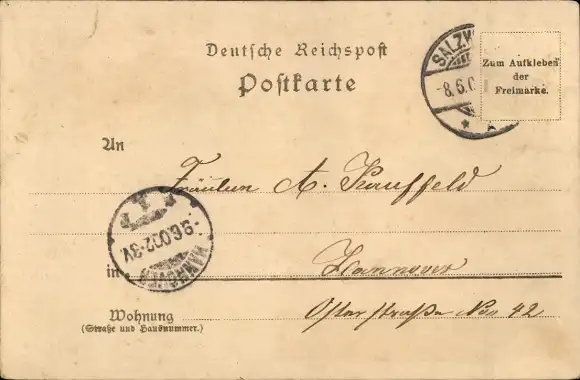 Deutsche Reichspost
Postkarte
Zum Aufkleben
der
Freimarke.
SALZK
8.6.0
An
Fräulein A. Kauffeld
9.6.00.2-3V.
HANNOVER
in Hannover
Wohnung
(Straße und Hausnummer.)
Osterstraße No 42